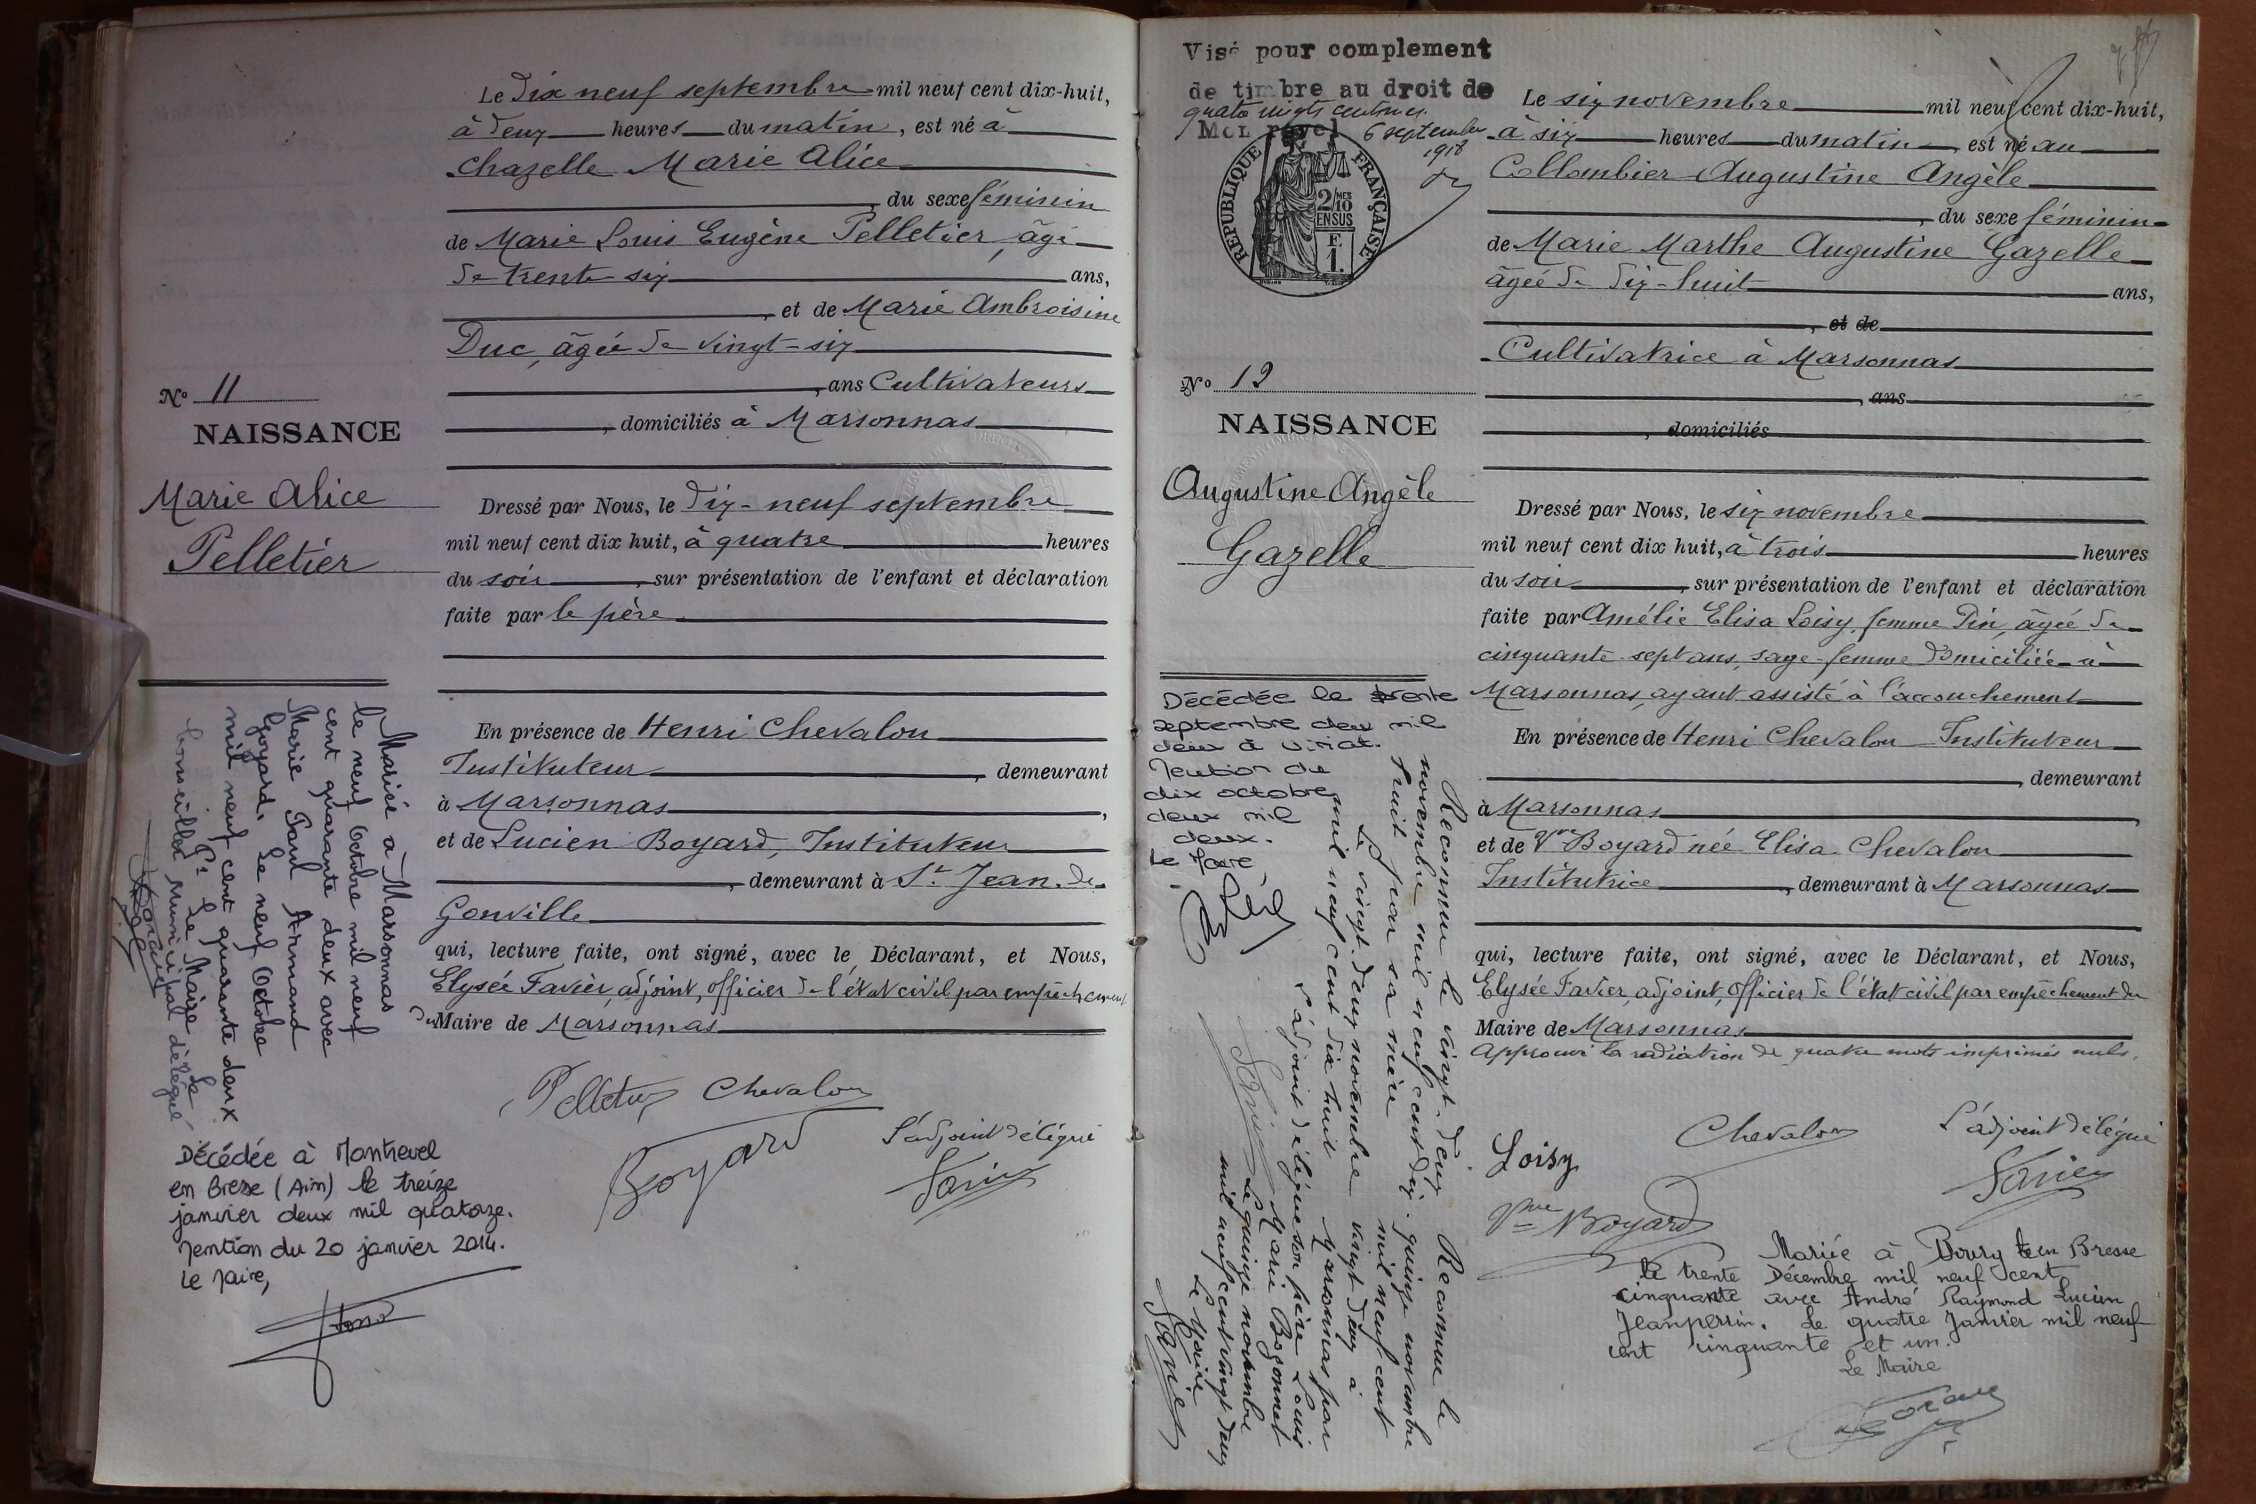 Le Dix neuf septembre mil neuf cent dix-huit,
à deux heures du matin, est né à
Chazelle Marie Alice
, du sexe féminin
de Marie Louis Eugène Pelletier, âgé
de trente six ans,
, et de Marie Ambroisine
Duc, âgée de vingt-six
, ans Cultivateurs
, domiciliés à Marsonnas
N° 11
NAISSANCE
Marie Alice
Pelletier
Dressé par Nous, le dix-neuf septembre
mil neuf cent dix huit, à quatre heures
du soir, sur présentation de l'enfant et déclaration
faite par le père
En présence de Henri Chevalon
Instituteur, demeurant
à Marsonnas,
et de Lucien Boyard, Instituteur
, demeurant à St Jean de
Gonville
qui, lecture faite, ont signé, avec le Déclarant, et Nous,
Elysée Favier, adjoint, officier de l'état civil par empêchement
du Maire de Marsonnas
Pelletier Chevalon
Boyard
L'adjoint délégué
Favier
Mariée à Marsonnas
le neuf Octobre mil neuf
cent quarante deux avec
Marie Paul Armand
Goyard. Le neuf Octobre
mil neuf cent quarante deux
Pr Le Maire Le
Conseiller Municipal délégué
Décédée à Montrevel
en Bresse (Ain) le treize
janvier deux mil quatorze.
Mention du 20 janvier 2014.
Le Maire,
Visé pour complement
de timbre au droit de
quatre vingts centimes.
Montrevel 6 septembre
1918
REPUBLIQUE FRANÇAISE
2/10 MES
EN SUS
F.
1.
Le six novembre mil neuf cent dix-huit,
à six heures du matin, est né au
Collombier Augustine Angèle
, du sexe féminin
de Marie Marthe Augustine Gazelle
âgée de dix-huit ans,
, et de
Cultivatrice à Marsonnas
, ans
, domiciliés
N° 12
NAISSANCE
Augustine Angèle
Gazelle
Dressé par Nous, le six novembre
mil neuf cent dix huit, à trois heures
du soir, sur présentation de l'enfant et déclaration
faite par Amélie Elisa Loisy, femme Pin, âgée de
cinquante-sept ans, sage-femme domiciliée à
Marsonnas, ayant assisté à l'accouchement
En présence de Henri Chevalon Instituteur
, demeurant
à Marsonnas,
et de Vve Boyard née Elisa Chevalon
Institutrice, demeurant à Marsonnas
qui, lecture faite, ont signé, avec le Déclarant, et Nous,
Elysée Favier, adjoint, officier de l'état civil par empêchement du
Maire de Marsonnas
Approuvé la radiation de quatre mots imprimés nuls.
Loisy
Chevalon
L'adjoint délégué
Favier
Vve Boyard
Décédée le trente
septembre deux mil
deux à Viriat.
Mention du
dix octobre
deux mil
deux.
Le Maire,
Reconnue le vingt-deux
novembre mil neuf cent dix-
huit par sa mère
Le vingt-deux novembre
mil neuf cent dix huit
L'adjoint délégué
Favier
Reconnue le
quinze novembre
mil neuf cent
vingt deux à
Marsonnas par
son père Louis
Marie Bozonnet
Le quinze novembre
mil neuf cent vingt deux
Le Maire
Mariée à Bourg en Bresse
le trente Décembre mil neuf cent
cinquante avec André Raymond Lucien
Jeanperrin. Le quatre Janvier mil neuf
cent cinquante et un.
Le Maire